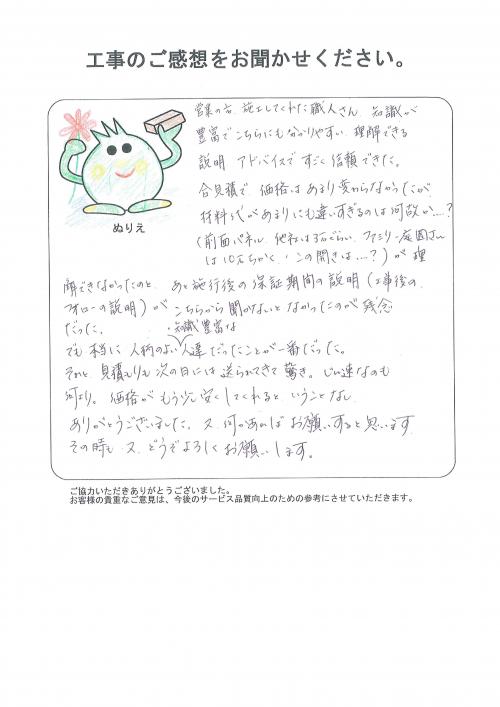 工事のご感想をお聞かせください。
営業の方、施工してくれた職人さん、知識が
豊富でこちらにもわかりやすい、理解できる
説明、アドバイスですごく信頼できた。
合見積で、価格はあまり変わらなかったが、
材料代があまりにも違いすぎるのは何故か…?
ぬりえ
(前面パネル、他社は3万ぐらい、ファミリー庭園さん
は10万ちかく、この開きは…?)が理
解できなかったのと、あと施行後の保証期間の説明(工事後の
フォローの説明)がこちらから聞かないとなかったのが残念
だった。
・知識豊富な
でも本当に人柄のよい人達だったことが一番だった。
それと見積もりも次の日には送られてきて驚き。迅速なのも
何より。価格がもう少し安くしてくれると、いうことなし。
ありがとうございました。又、何かあればお願いすると思います。
その時も又、どうぞよろしくお願いします。
ご協力いただきありがとうございました。
お客様の貴重なご意見は、今後のサービス品質向上のための参考にさせていただきます。